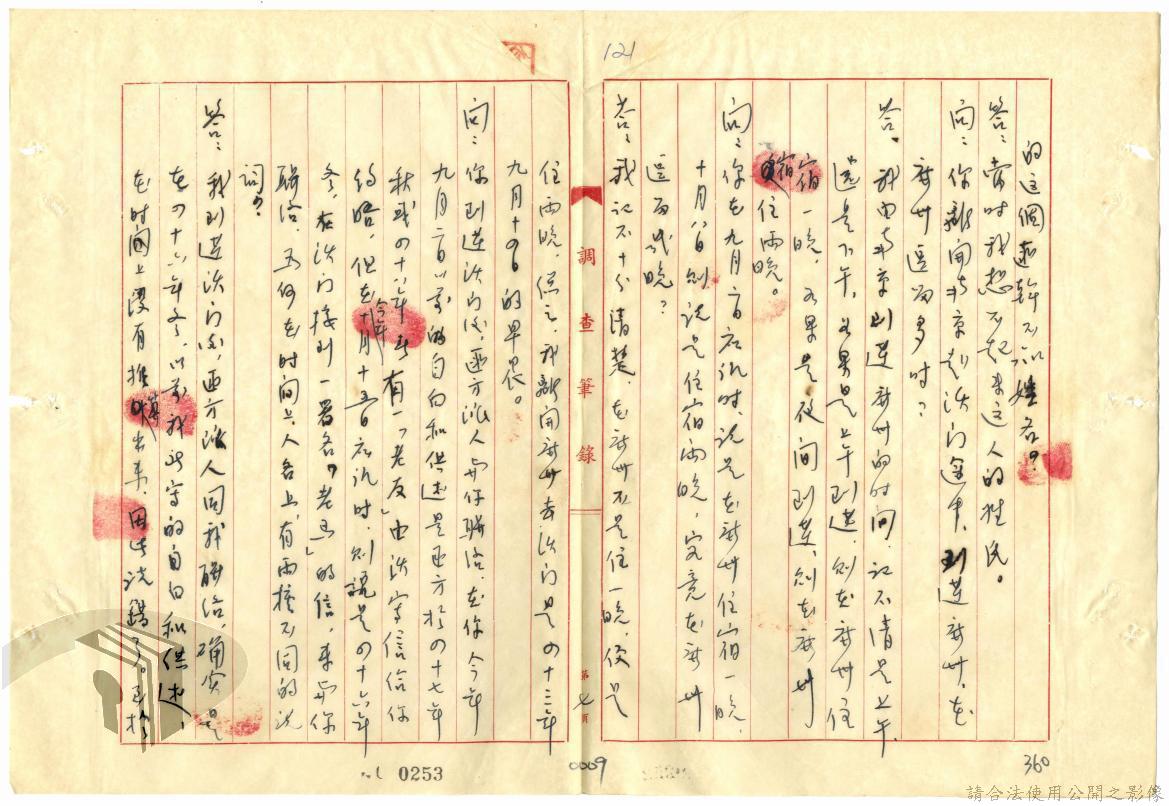 121
的這個匪幹不知姓名？
答：當時我想不起來這人的姓氏。
問：你離開南京赴沃門途中，到達廣州，在
廣州逗留多時？
答：我由南京到達廣州的時間，記不清是上午
還是下午，如果是上午到達，則在廣州住
宿一晚，如果是夜間到達，則在廣州
住兩晚。
問：你在九月　日應訊時，說是在廣州住宿一晚，
十月八日則說是住宿兩晚，究竟在廣州
逗留幾晚？
答：我記不十分清楚，在廣州不是住一晚，便是
住兩晚，總之，我離開廣州去沃門是四十三年
九月十　日的早晨。
問：你到達沃門後，匪方派人與你聯絡，在你今年
九月二日以前的自白和供述是匪方於四十七年
秋或四十八年春有一「老反」由沃寄信信你
約晤，但在今年十月十五日應訊時，則說是四十六年
冬，在沃門接到一署名「老　」的信，來與你
聯絡，為何在時間上、人名上，有兩種不同的說
詞？
答：我到達沃門後，匪方派人同我聯絡，確實是
在四十六年冬，以前我所寫的自白和供述，
在時間上沒有推　出來，因此說錯了。至於
調查筆錄
第七頁
0253
0009
360
請合法使用公開之影像